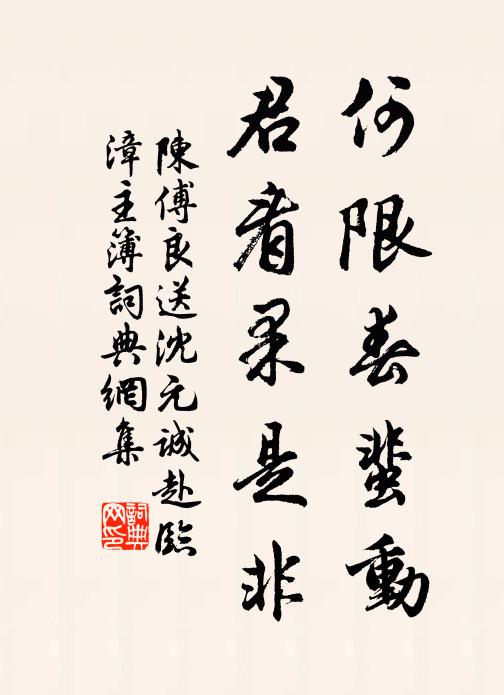 何限春蜚動
君看果是非
陳傅良送沈元誠赴臨
漳主簿詞典網集
詞典网印